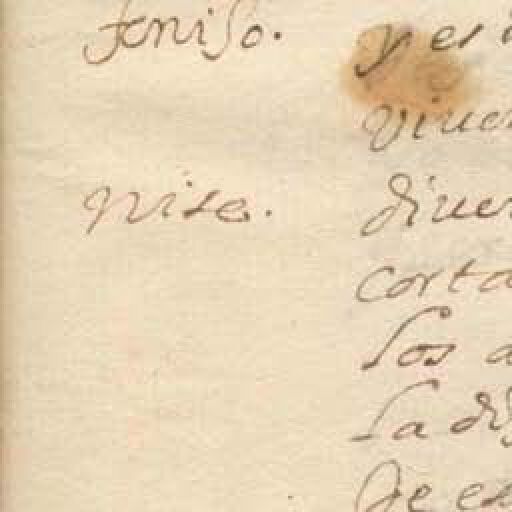 feniso. y es
viuer
nise. diuer
corta
los a
la dis
de es